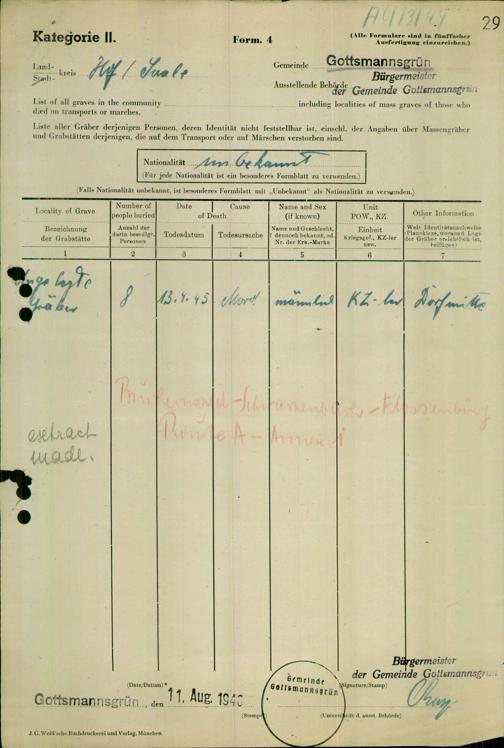 A4/3/45
29
Kategorie II.
Form. 4
(Alle Formulare sind in fünffacher
Ausfertigung einzureichen.)
Land-
Stadt-
kreis Hof / Saale
Gemeinde Gottsmannsgrün
Ausstellende Behörde
Bürgermeister
der Gemeinde Gottsmannsgrün
List of all graves in the community
including localities of mass graves of those who
died on transports or marches.
Liste aller Gräber derjenigen Personen, deren Identität nicht feststellbar ist, einschl. der Angaben über Massengräber
und Grabstätten derjenigen, die auf dem Transport oder auf Märschen verstorben sind.
Nationalität unbekannt
(Für jede Nationalität ist ein besonderes Formblatt zu verwenden.)
(Falls Nationalität unbekannt, ist besonderes Formblatt mit „Unbekannt" als Nationalität zu versenden.)
Locality of Grave
Number of
people buried
Date
Cause
of Death
Name and Sex
(if known)
Unit
POW., KZ.
Other Information
Bezeichnung
der Grabstätte
Anzahl der
darin beerdigt.
Personen
Todesdatum
Todesursache
Name und Geschlecht,
dennoch bekannt, od.
Nr. der Erk.-Marke
Einheit
Kriegsgef., KZ-ler
usw.
Welt Identitätsnachweise
der Gräber ersichtlich ist,
beifügen)
1 2 3 4 5 6 7
Gräber
8
13.4.45
Mord
männlich
KZ-ler
Dorfmitte
Flossenbürg
Route A - Annex 1
extract
made.
(Date/Datum)
Gottsmannsgrün, den 11. Aug. 1946
(Stempel)
Gemeinde
Gottsmannsgrün
Bürgermeister
der Gemeinde Gottsmannsgrün
(Signature/Stamp)
(Unterschrift d. ausst. Behörde)
J. G. Weiß'sche Buchdruckerei und Verlag, München.